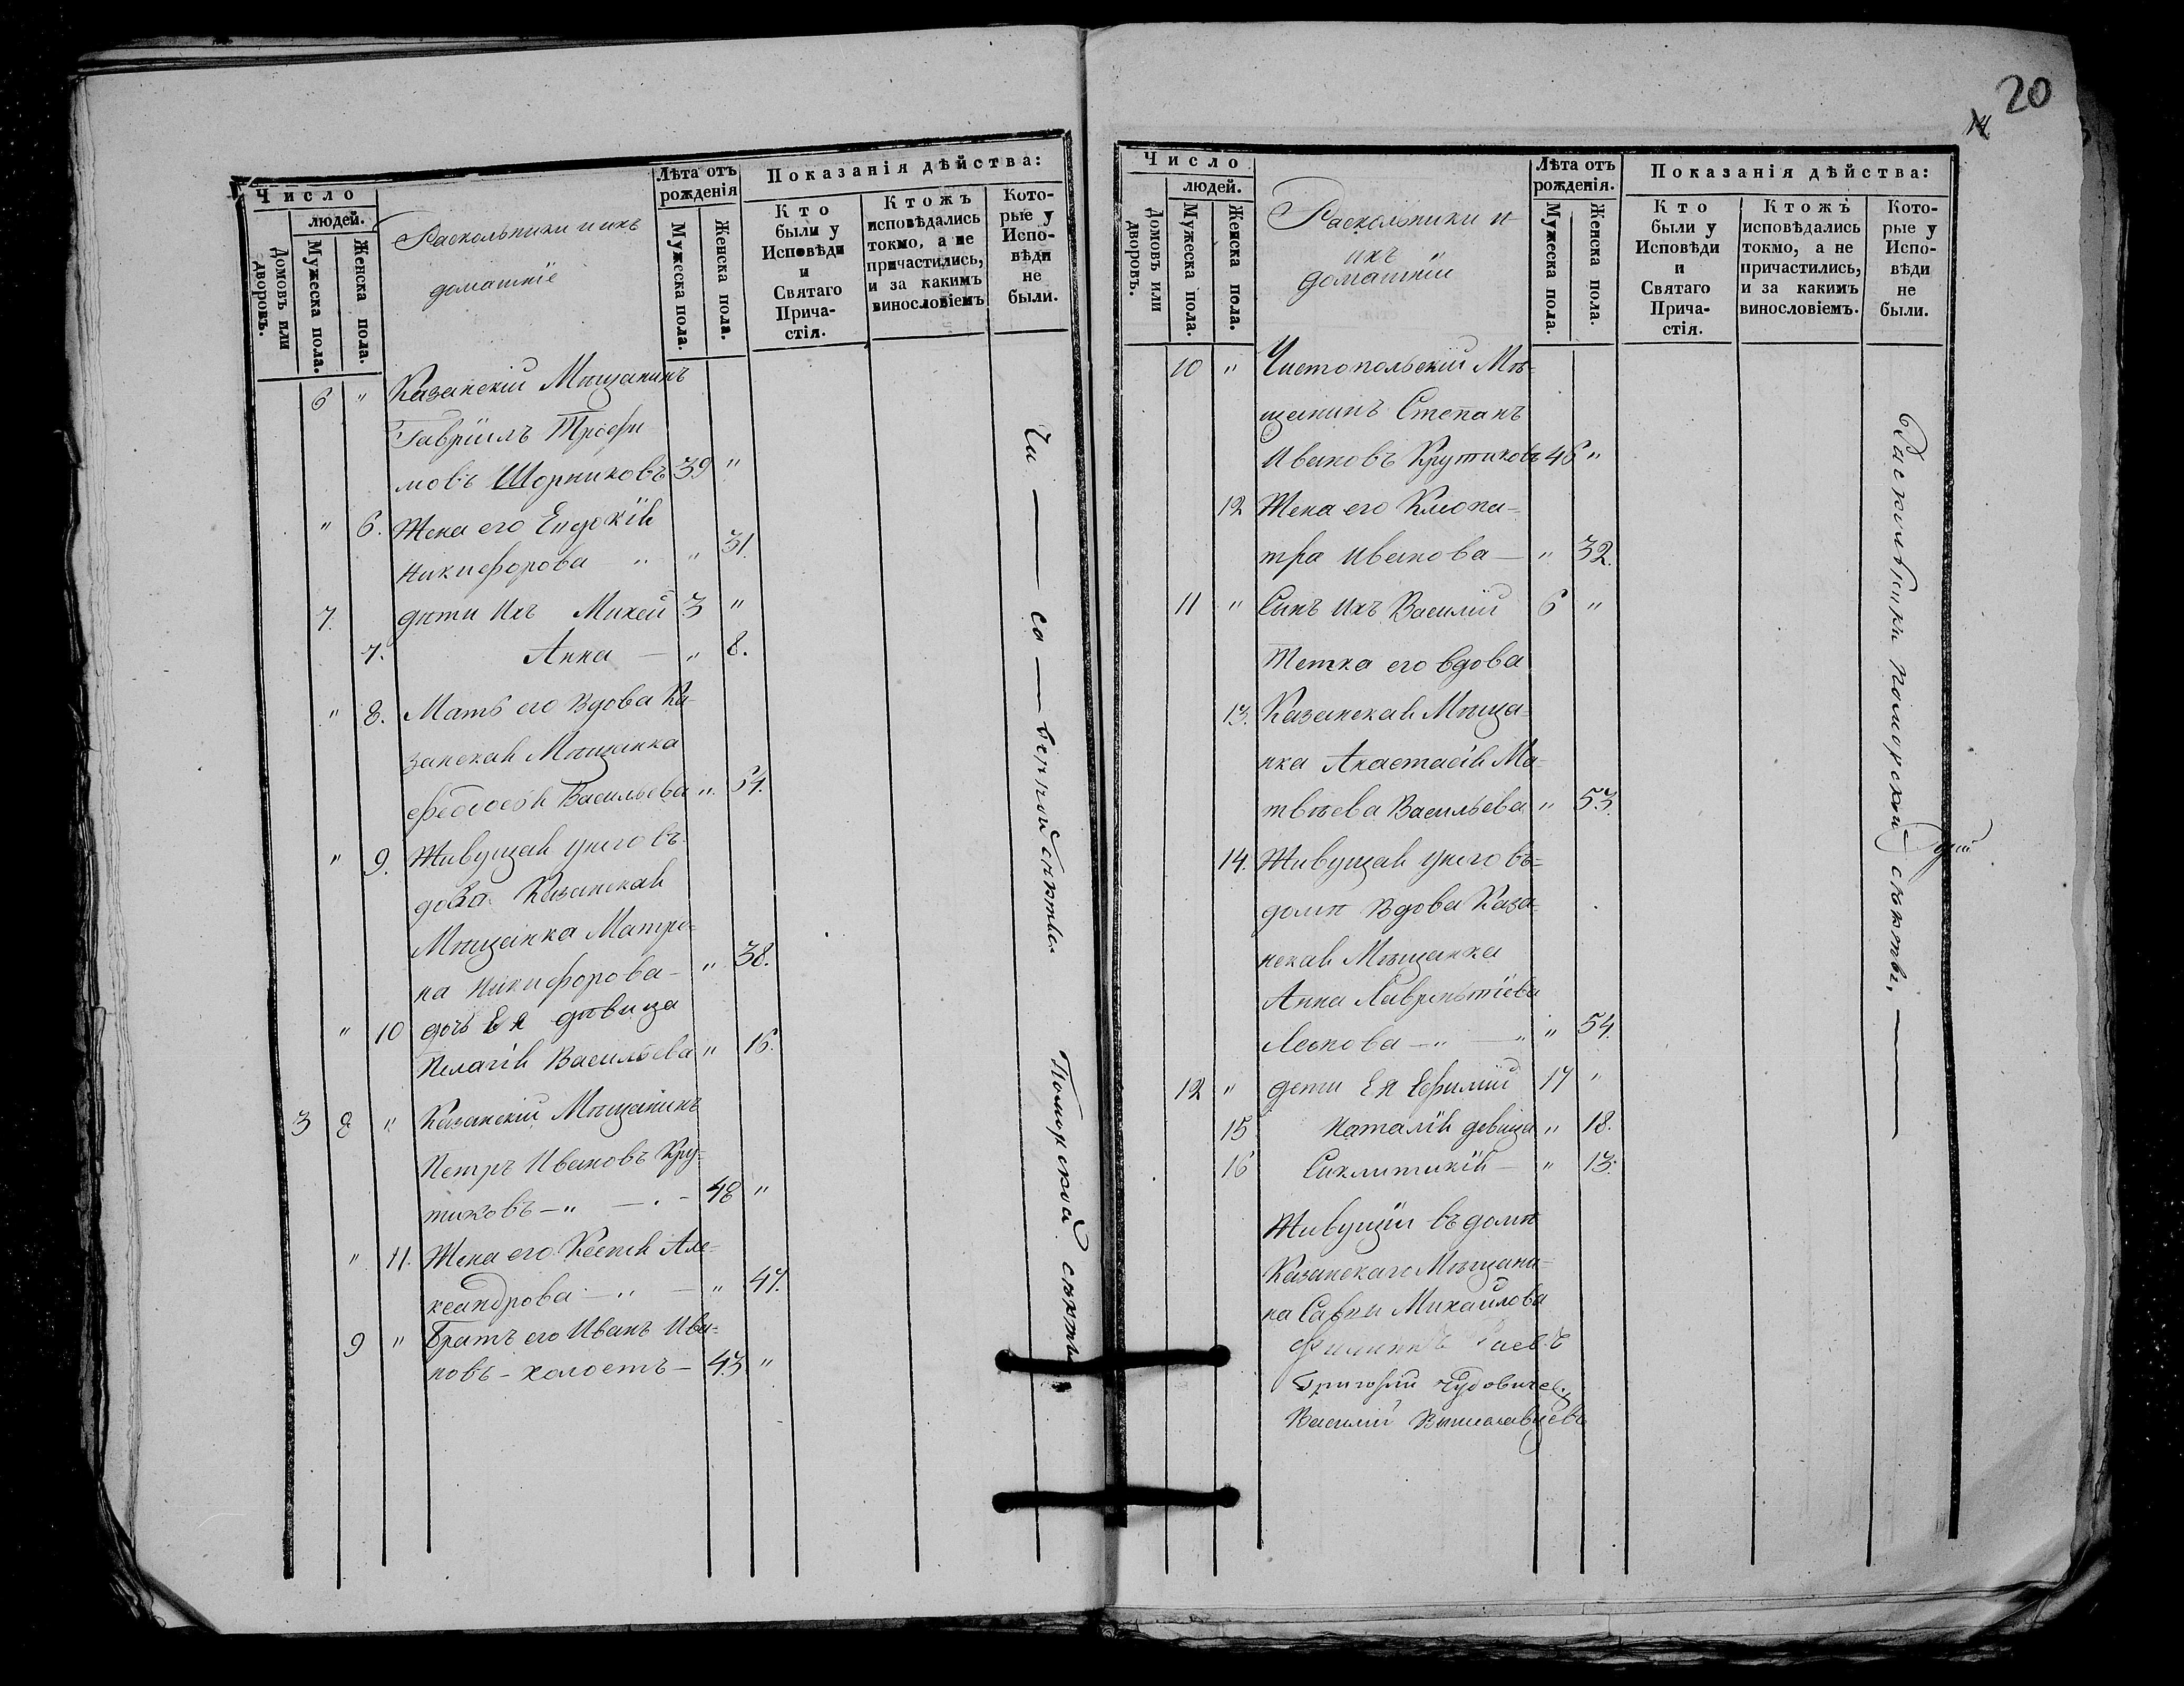 20
14
Число
людей.
Домовъ или дворовъ.
Мужеска пола.
Женска пола.
Раскольники и ихъ
домашніе
Лѣта отъ рожденія
Мужеска пола.
Женска пола.
Показанія дѣйства:
Кто были у Исповѣди и Святаго Прича- стія.
Ктожъ исповѣдались токмо, а не причастились, и за какимъ винословіемъ
Кото- рые у Испо- вѣди не были.
6 " Казанскій Мѣщанинъ
Гавріилъ Трофи
мовъ Шорниковъ 39 "
" 6. Жена его Евдокія
Никифорова " " 31.
7. дѣти Ихъ Михей 3 "
7. Анна — " 8.
" 8. Мать его Вдова Ка-
занская Мѣщанка
Феодосья Васильева " 64.
" 9. Живущая у него въ-
дова Казанская
Мѣщанка Матре-
на Никифорова - " 38.
" 10 дочь Ея дѣвица
Пелагія Васильева " 16.
3 8 " Казанскій Мѣщанинъ
Петръ Ивановъ Кру-
тиковъ — " — 48 "
" 11. Жена его Ксенія Але-
ксандрова — " — " 47.
9 " Братъ его Иванъ Ива-
новъ - холостъ - 43. "
Поморской секты
Число
людей.
Домовъ или дворовъ.
Мужеска пола.
Женска пола.
Раскольники и
ихъ
домашніи
Лѣта отъ рожденія.
Мужеска пола.
Женска пола.
Показанія дѣйства:
Кто были у Исповѣди и Святаго Прича- стія.
Ктожъ исповѣдались токмо, а не причастились, и за какимъ винословіемъ.
Кото- рые у Испо- вѣди не были.
10 " Чистопольскій Мѣ-
щанинъ Степанъ
Ивановъ Крутиковъ 46 "
12 Жена его Клеопа-
тра Иванова — " 32.
11 " Сынъ Ихъ Василій 6 "
Тетка его вдова
13. Казанская Мѣща-
нка Анастасія Ма-
твѣева Васильева " 53.
14. Живущая у него въ-
домѣ Вдова Каза-
нская Мѣщанка
Анна Лаврентіева
Леонова — " — " 54.
12 " дети Ея Ефимій 17 "
15 Наталія девица " 18.
16 Синклитикія — " 13.
Живущіи въ домѣ
Казанскаго Мѣщани-
на Савы Михаилова
Григорій
Василій
Раскольники поморской секты. —